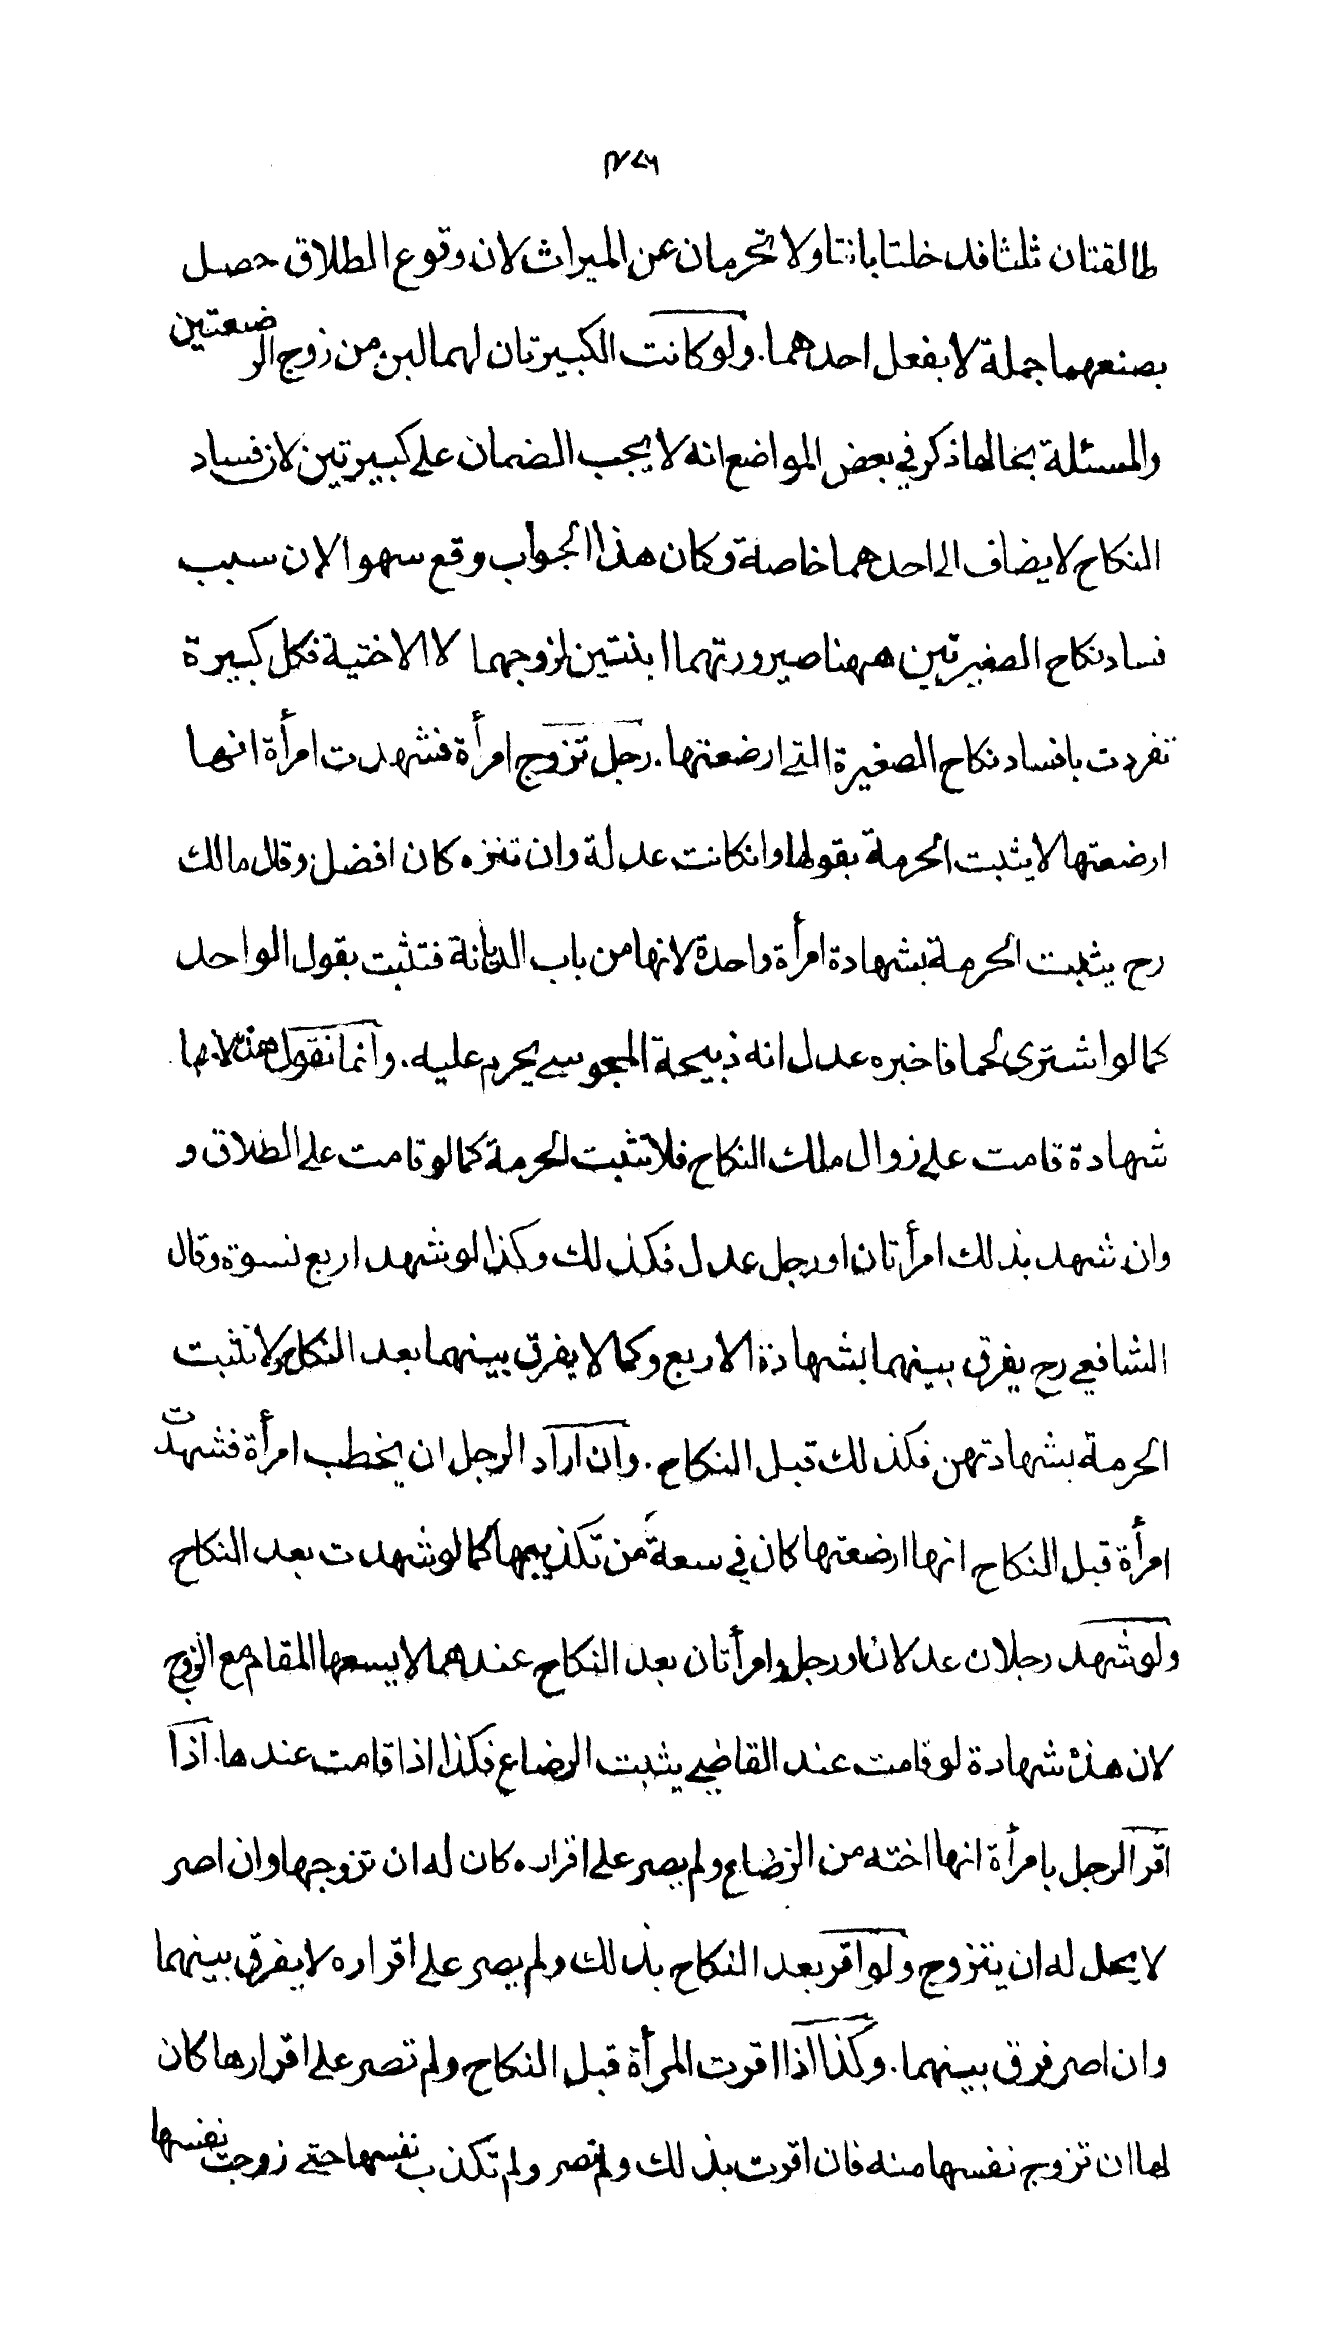 ٣٧٦
طالقتان ثلثا فدخلتا بانتا ولا تحرمان عن الميراث لان وقوع الطلاق حصل
بصنعهما جملة لا بفعل احدهما. ولو كانت الكبيرتان لهما لبن من زوج الرضعتين
والمسئلة بحالها ذكر في بعض المواضع انه لا يجب الضمان على كبيرتين لان فساد
النكاح لا يضاف الى احدهما خاصة وكان هذا الجواب وقع سهوا لان سبب
فساد نكاح الصغيرتين ههنا صيرورتهما ابنتين لزوجهما لا الاختية فكل كبيرة
تفردت بافساد نكاح الصغيرة التي ارضعتها. رجل تزوج امرأة فشهدت امرأة انها
ارضعتها لا يثبت الحرمة بقولها وانكانت عدلة وان تنزه كان افضل وقال مالك
رح يثبت الحرمة بشهادة امرأة واحدة لانها من باب الديانة فتثبت بقول الواحد
كما لو اشترى لحما فاخبره عدل انه ذبيحة المجوسي يحرم عليه. وانما نقول هذه لانها
شهادة قامت على زوال ملك النكاح فلا تثبت الحرمة كما لو قامت على الطلاق و
وان شهد بذلك امرأتان او رجل عدل فكذلك وكذا لو شهد اربع نسوة وقال
الشافعي رح يفرق بينهما بشهادة الاربع وكما لا يفرق بينهما بعد النكاح ولا تثبت
الحرمة بشهادتهن فكذلك قبل النكاح. وان اراد الرجل ان يخطب امرأة فشهدت
امرأة قبل النكاح انها ارضعتها كان في سعة من تكذيبها كما لو شهدت بعد النكاح
ولو شهد رجلان عدلان او رجل وامرأتان بعد النكاح عندهما لا يسعها المقام مع الزوج
لان هذه شهادة لو قامت عند القاضي يثبت الرضاع فكذا اذا قامت عندها. اذا
اقر الرجل بامرأة انها اخته من الرضاع ولم يصر على اقراره كان له ان تزوجها وان اصر
لا يحل له ان يتزوج ولو اقر بعد النكاح بذلك ولم يصر على اقراره لا يفرق بينهما
وان اصر فرق بينهما. وكذا اذا اقرت المرأة قبل النكاح ولم تصر على اقرارها كان
لها ان تزوج نفسها منه فان اقرت بذلك ولم تصر ولم تكذب نفسها حتى زوجت نفسها